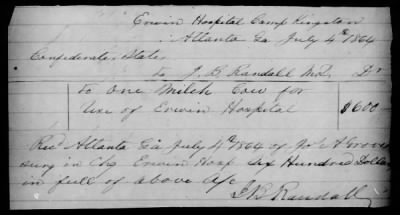 Erwin Hospital Camp Kingston
Atlanta Ga July 4th 1864
Confederate States
to J. B. Randall M.D. Dr
To One Milch Cow for
Use of Erwin Hospital $600
Rec Atlanta Ga July 4th 1864 of Jno A Groves
Surg in Chg Erwin Hosp Six Hundred Dollars
in full of above a/c
J B Randall